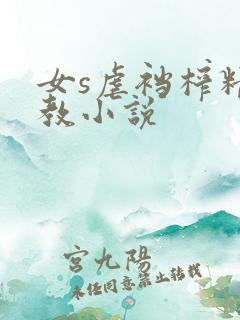 女s虐裆榨精
教小说
宫九陽
未经同意禁止转载